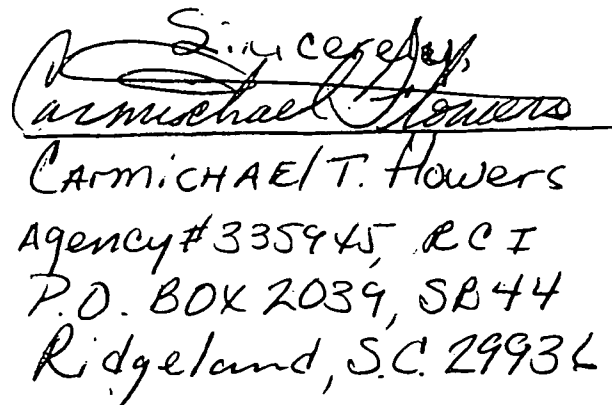 Sincerely,
Carmichael Flowers
CArmiCHAEl T. Flowers
Agency# 335945, RCI
P.O. BOX 2039, SB44
Ridgeland, S.C. 29936